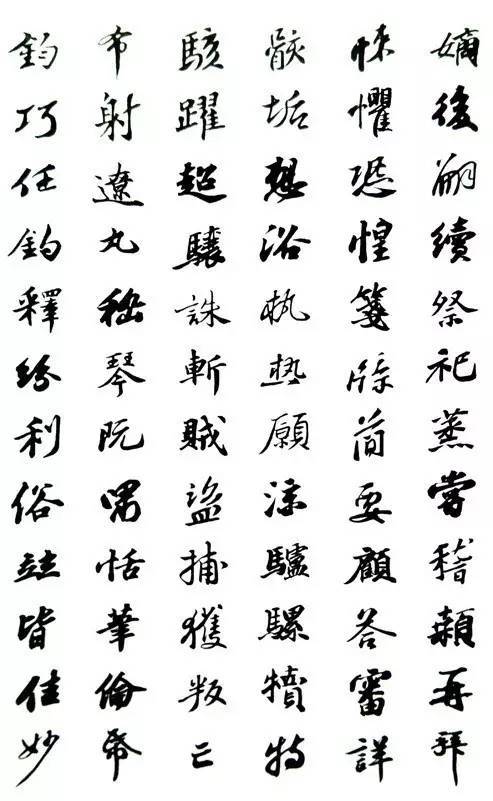 嫡後嗣續祭祀蒸嘗稽顙再拜
悚懼恐惶箋牒簡要顧答審詳
骸垢想浴執熱願涼驢騾犢特
駭躍超驤誅斬賊盜捕獲叛亡
布射遼丸嵇琴阮嘯恬筆倫帋
鈞巧任釣釋紛利俗竝皆佳妙